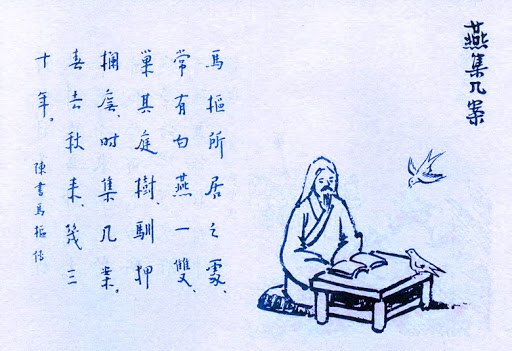 燕集几案
馬樞所居之處、
常有白燕一雙、
巢其庭樹、馴押
欄廡、时集几案。
春去秋来、幾三
十年。
陳書馬樞传